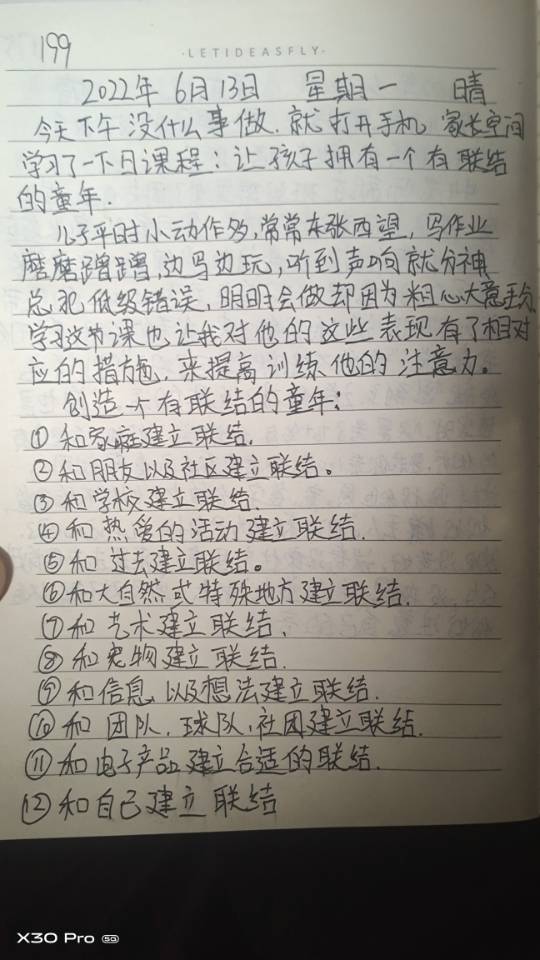 199
·LETIDEASFLY·
2022年 6月13日 星期一 晴
今天下午没什么事做.就打开手机 家长空间
学习了一下日课程:让孩子拥有一个有联结
的童年.
儿子平时小动作多,常常东张西望,写作业
磨磨蹭蹭,边写边玩,听到声响就分神
总犯低级错误,明明会做却因为粗心大意
学习这节课也让我对他的这些表现有了相对
应的措施,来提高训练他的注意力。
创造一个有联结的童年:
①和家庭建立联结.
②和朋友以及社区建立联结。
③和学校建立联结.
④和热爱的活动建立联结.
⑤和过去建立联结。
⑥和大自然或特殊地方建立联结.
⑦和艺术建立联结、
⑧和宠物建立联结.
⑨和信息以及想法建立联结.
⑩和团队,球队,社团建立联结.
⑪和电子产品建立合适的联结.
⑫和自己建立联结
X30 Pro 5G